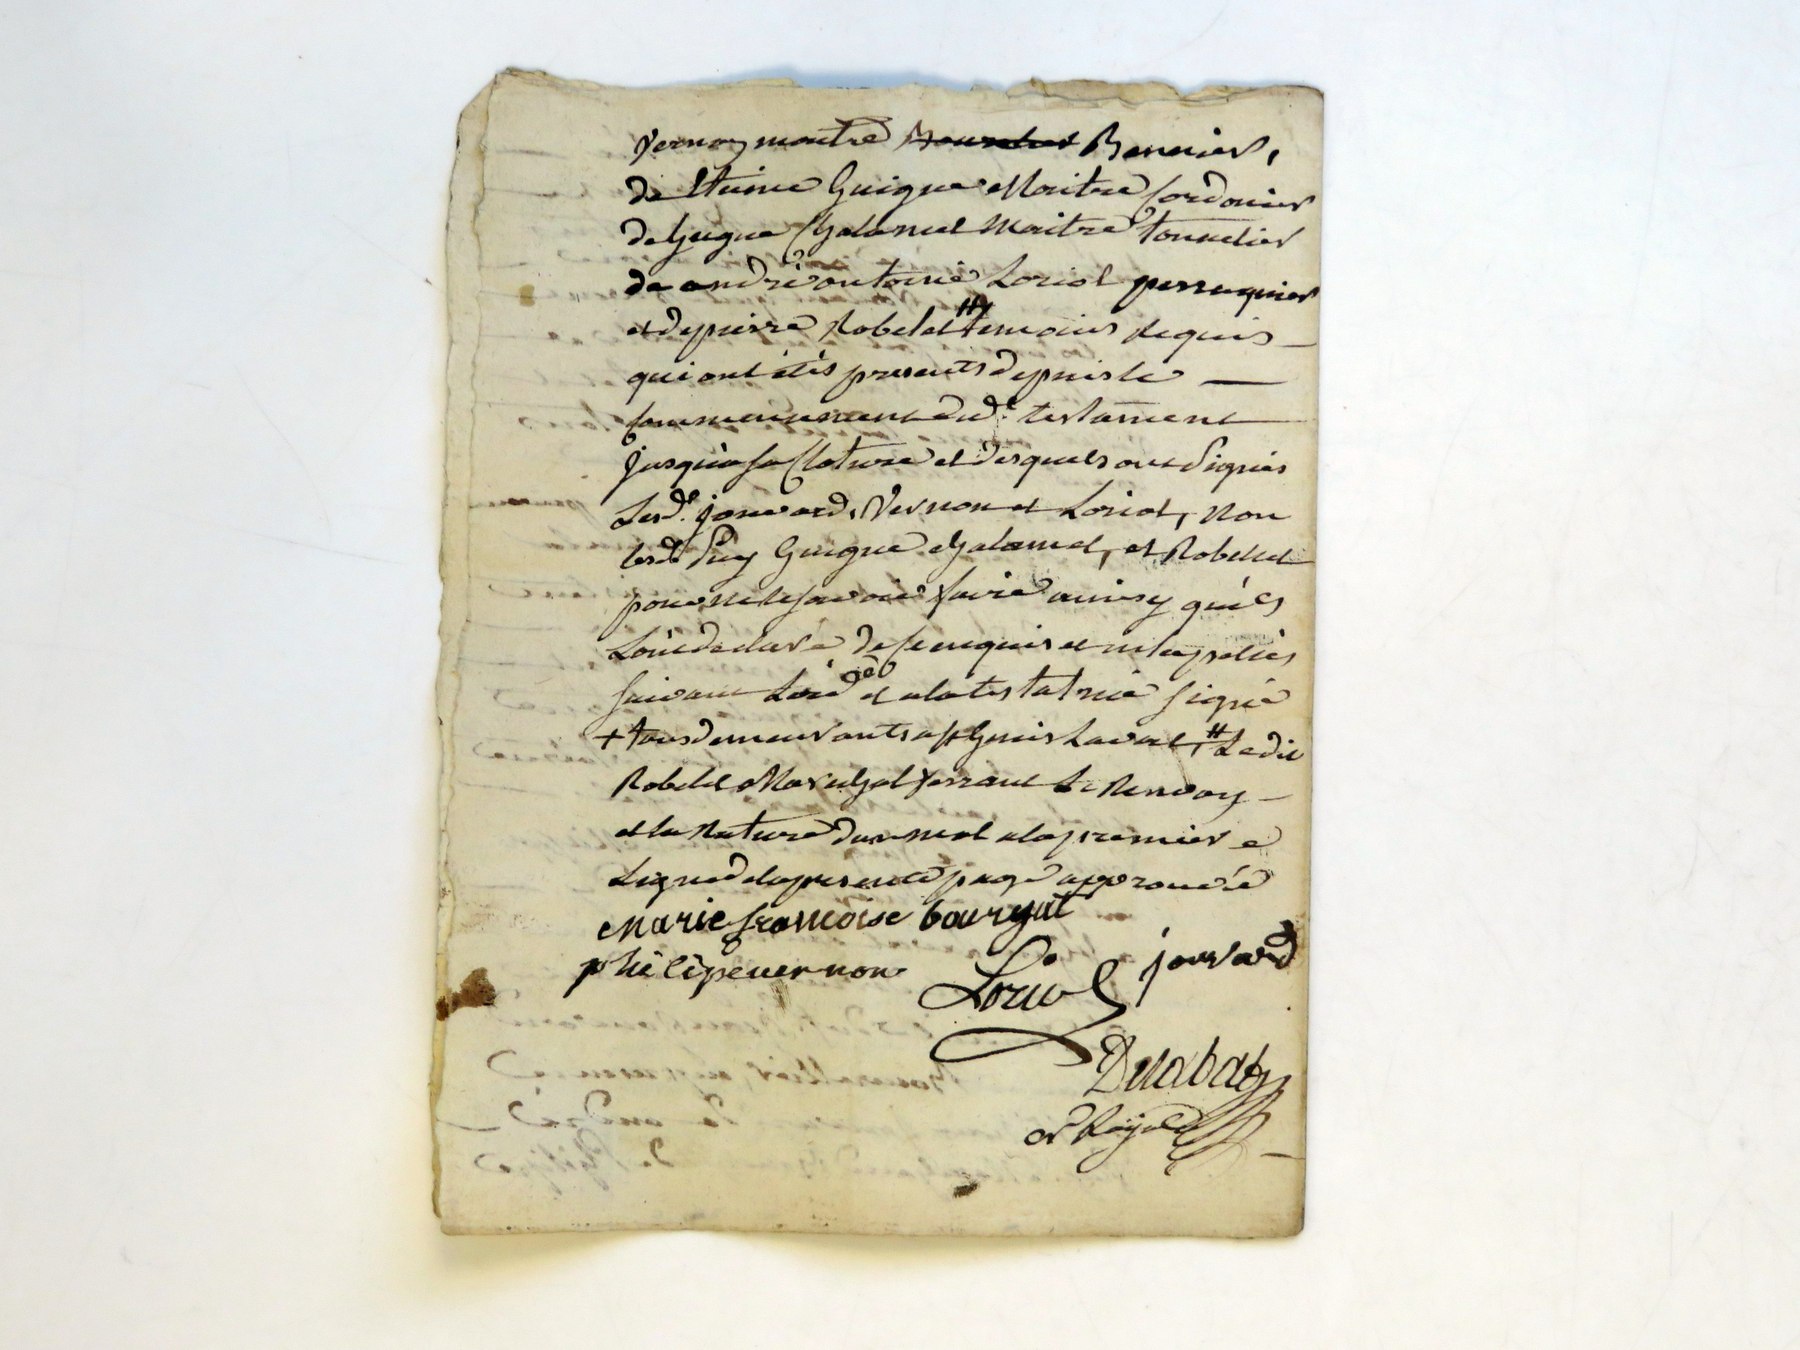 Vernon maitre Bennier,
de Guigue Maitre Cordonier
de hugue Chalamel Maitre tonnelier
de andré antoine Loriol perruquier
et de pierre Robelet # temoins Requis
qui ont étés presents depuis le
commancement dud. testament
jusqu'a sa Cloture et desquels ont signés
Lesd. jouvard, Vernon et Loriol, non
lesd. Guigue Chalamel, et Robelet
pour ne le savoir faire ainsy qu'ils
L'ont declaré de ce enquis et interpellés
suivant L'ord et a la testatrice signé
+ tous demeurants a St Genis Laval, # Ledit
Robelet Marechal ferrant Le Renvoy
et la Rature d'un mot a la premiere
Ligne de la presente page approuvée
Marie francoise bourgat
philipe vernon
Loriol
jouvard
Delabat
Nre Royal